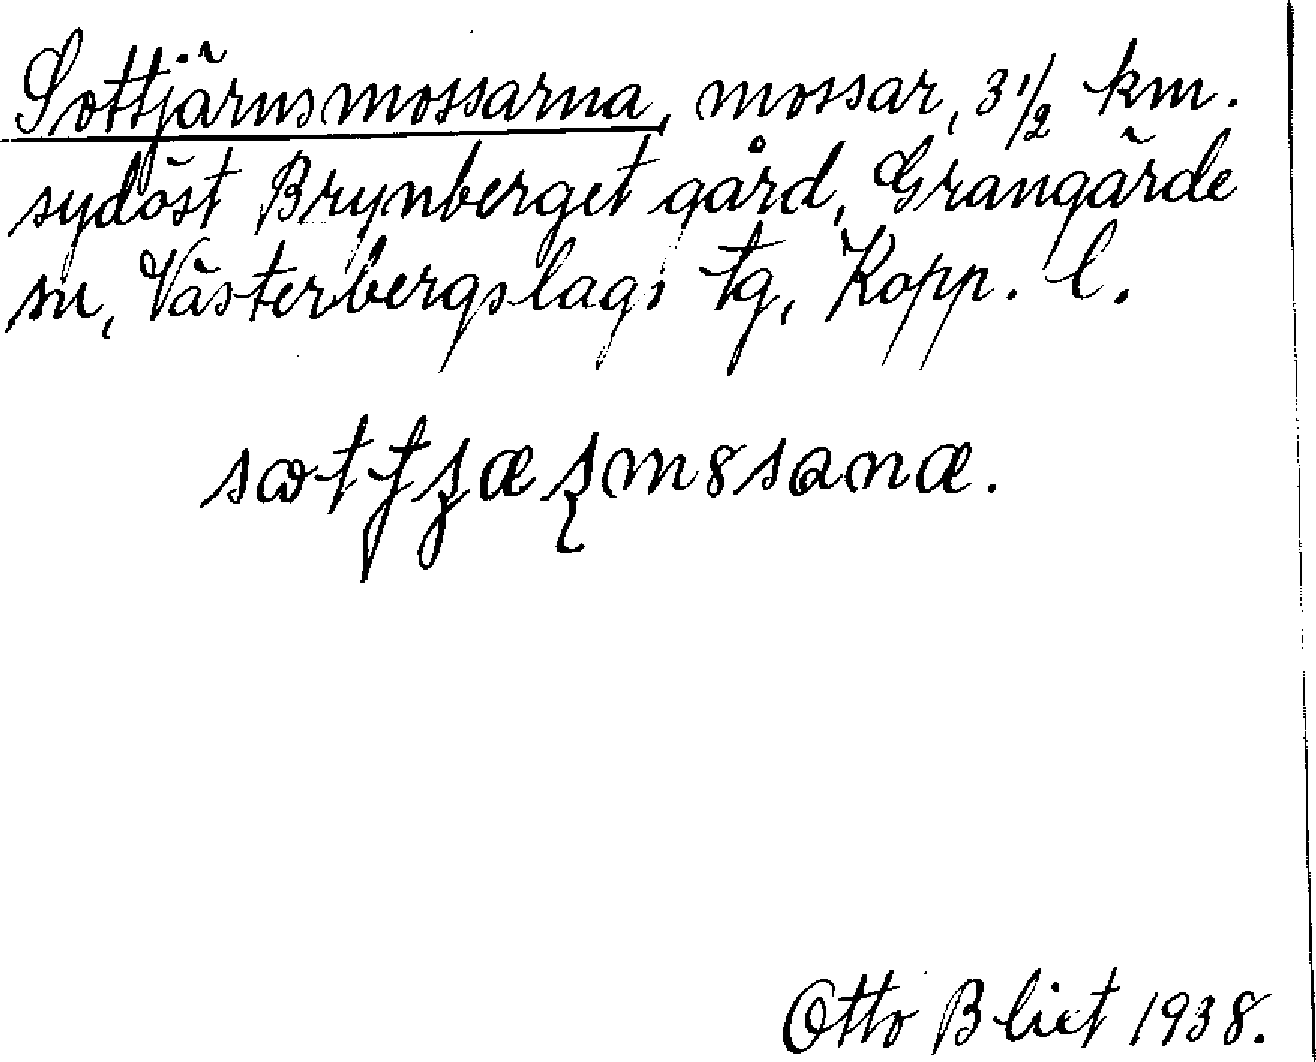 Sottjärnsmossarna, mossar, 3 1/2 km.
sydöst Brynberget gård, Grangärde
sn, Västerbergslags tg, Kopp. l.
Otto Blixt 1938.